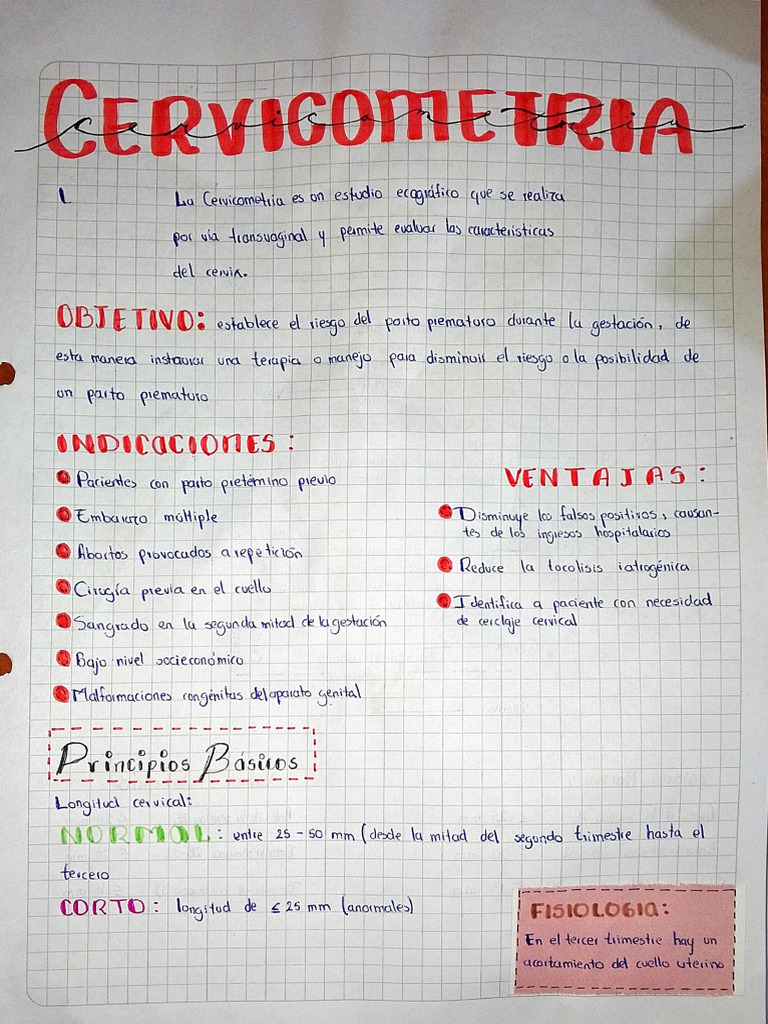 CERVICOMETRIA
cervicometria
L
La Cervicometria es un estudio ecográfico que se realiza
por vía transvaginal y permite evaluar las caracteristicas
del cervix.
OBJETIVO: establece el riesgo del parto prematuro durante la gestación, de
esta manera instaurar una terapia o manejo para disminuir el riesgo o la posibilidad de
un parto prematuro
INDICACIONES:
Pacientes con parto pretérmino previo
Embarazo múltiple
Abortos provocados a repetición
Cirugía previa en el cuello
Sangrado en la segunda mitad de la gestación
Bajo nivel socieconómico
Malformaciones congénitas del aparato genital
VENTAJAS:
Disminuye los falsos positivos, causan-
tes de los ingresos hospitalarios
Reduce la tocolisis iatrogénica
Identifica a paciente con necesidad
de cerclaje cervical
Principios Básicos
Longitud cervical:
NORMAL: entre 25 - 50 mm (desde la mitad del segundo trimestre hasta el
tercero
CORTO: longitud de ≤ 25 mm (anormales)
FISIOLOGIA:
En el tercer trimestre hay un
acortamiento del cuello uterino